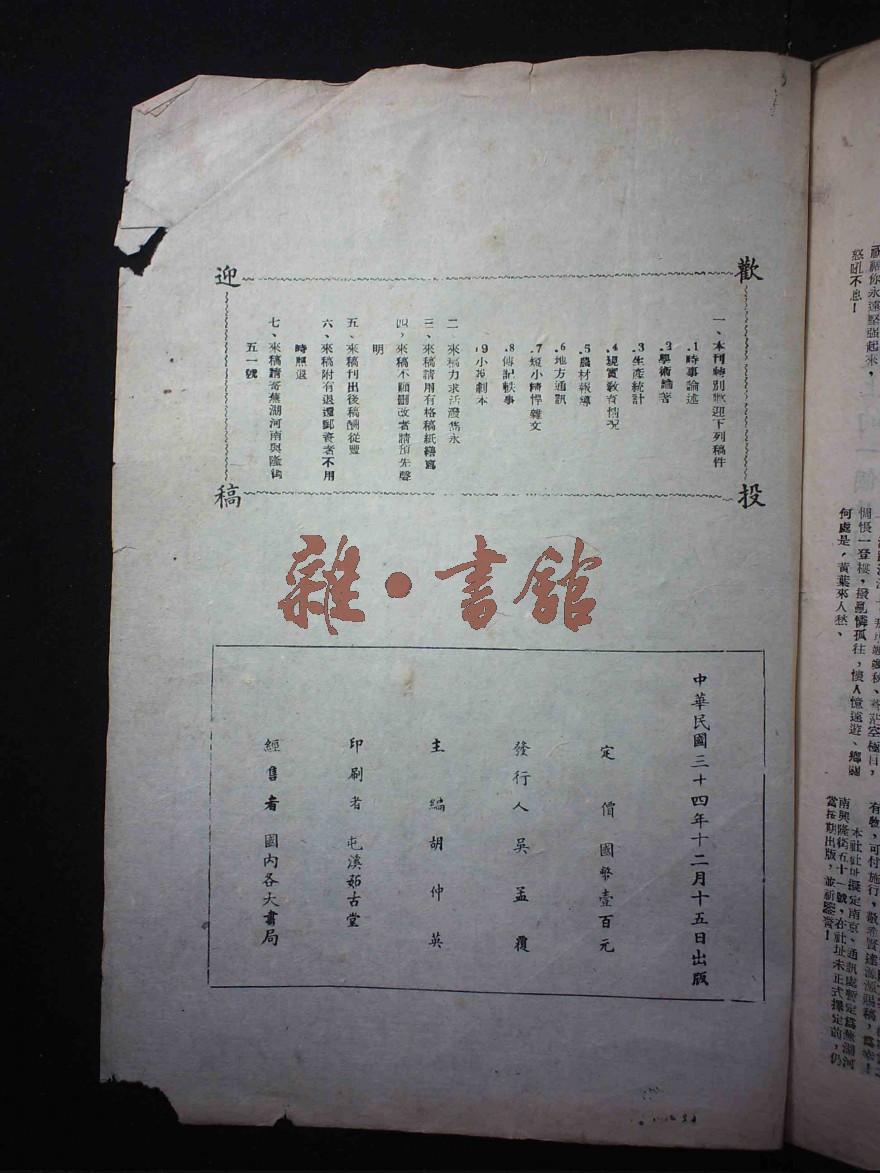 歡迎投稿
一、本刊特別歡迎下列稿件
1.時事論述
2.學術論著
3.生產統計
4.現實教育情況
5.農村報導
6.地方通訊
7.短小精悍雜文
8.傳記軼事
9.小說劇本
二、來稿力求活潑雋永
三、來稿請用有格稿紙繕寫
四、來稿不願刪改者請預先聲
明
五、來稿刊出後稿酬從豐
六、來稿附有退還郵資者不用
時照退
七、來稿請寄蕪湖河南興隆街
五一號
雜·書館
中華民國三十四年十二月十五日出版
定價國幣壹百元
發行人吳孟覆
主編胡仲英
印刷者屯溪茹古堂
經售者國內各大書局
你永遠堅強起來，
怒吼不息！
空極目，
惆悵一登樓，撥亂憐孤往，懷人憶遠遊、鄉關
何處是，黃葉來人愁、
有發、可付施行，敬希賢達源源賜稿，爲幸！
本社社址擬定南京、通訊處暫定爲蕪湖河
南興隆街五十一號，在社址未正式擇定前，仍
當按期出版，並祈鑒詧！